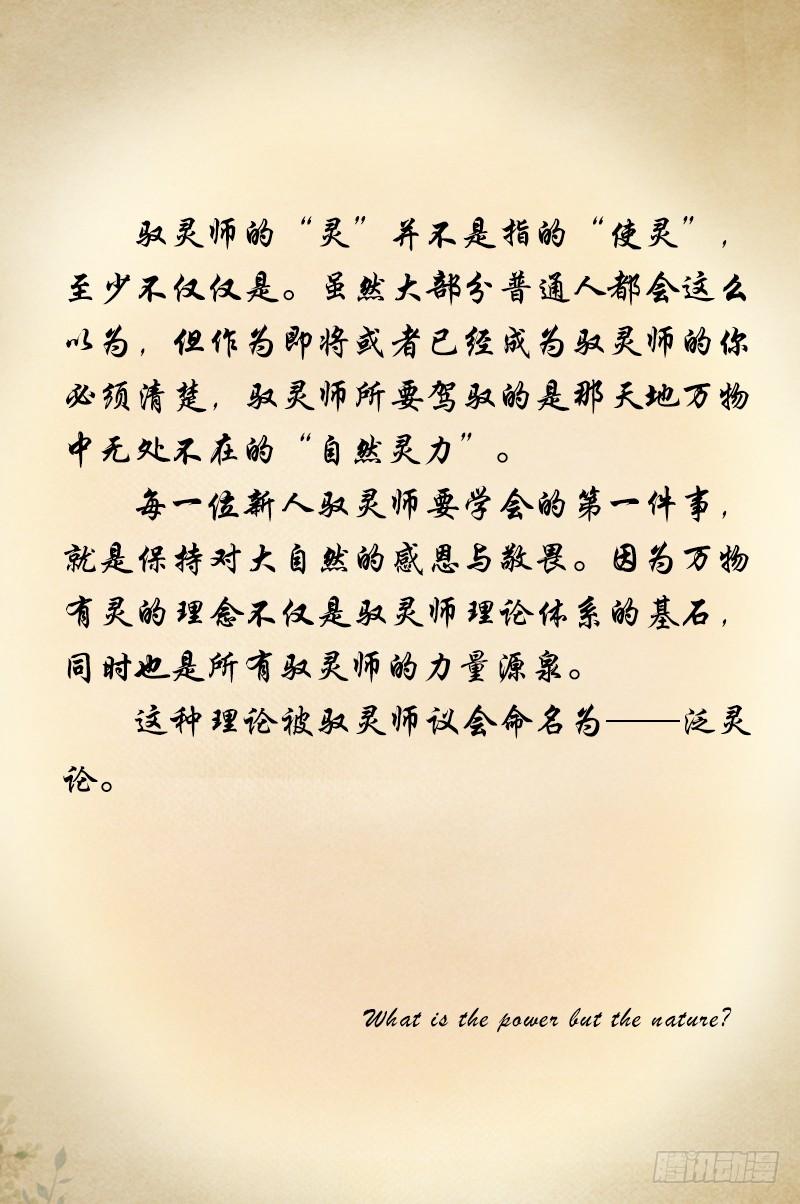 驭灵师的“灵”并不是指的“使灵”，
至少不仅仅是。虽然大部分普通人都会这么
以为，但作为即将或者已经成为驭灵师的你
必须清楚，驭灵师所要驾驭的是那天地万物
中无处不在的“自然灵力”。
每一位新人驭灵师要学会的第一件事，
就是保持对大自然的感恩与敬畏。因为万物
有灵的理念不仅是驭灵师理论体系的基石，
同时也是所有驭灵师的力量源泉。
这种理论被驭灵师议会命名为——泛灵
论。
What is the power but the nature?
腾讯动漫